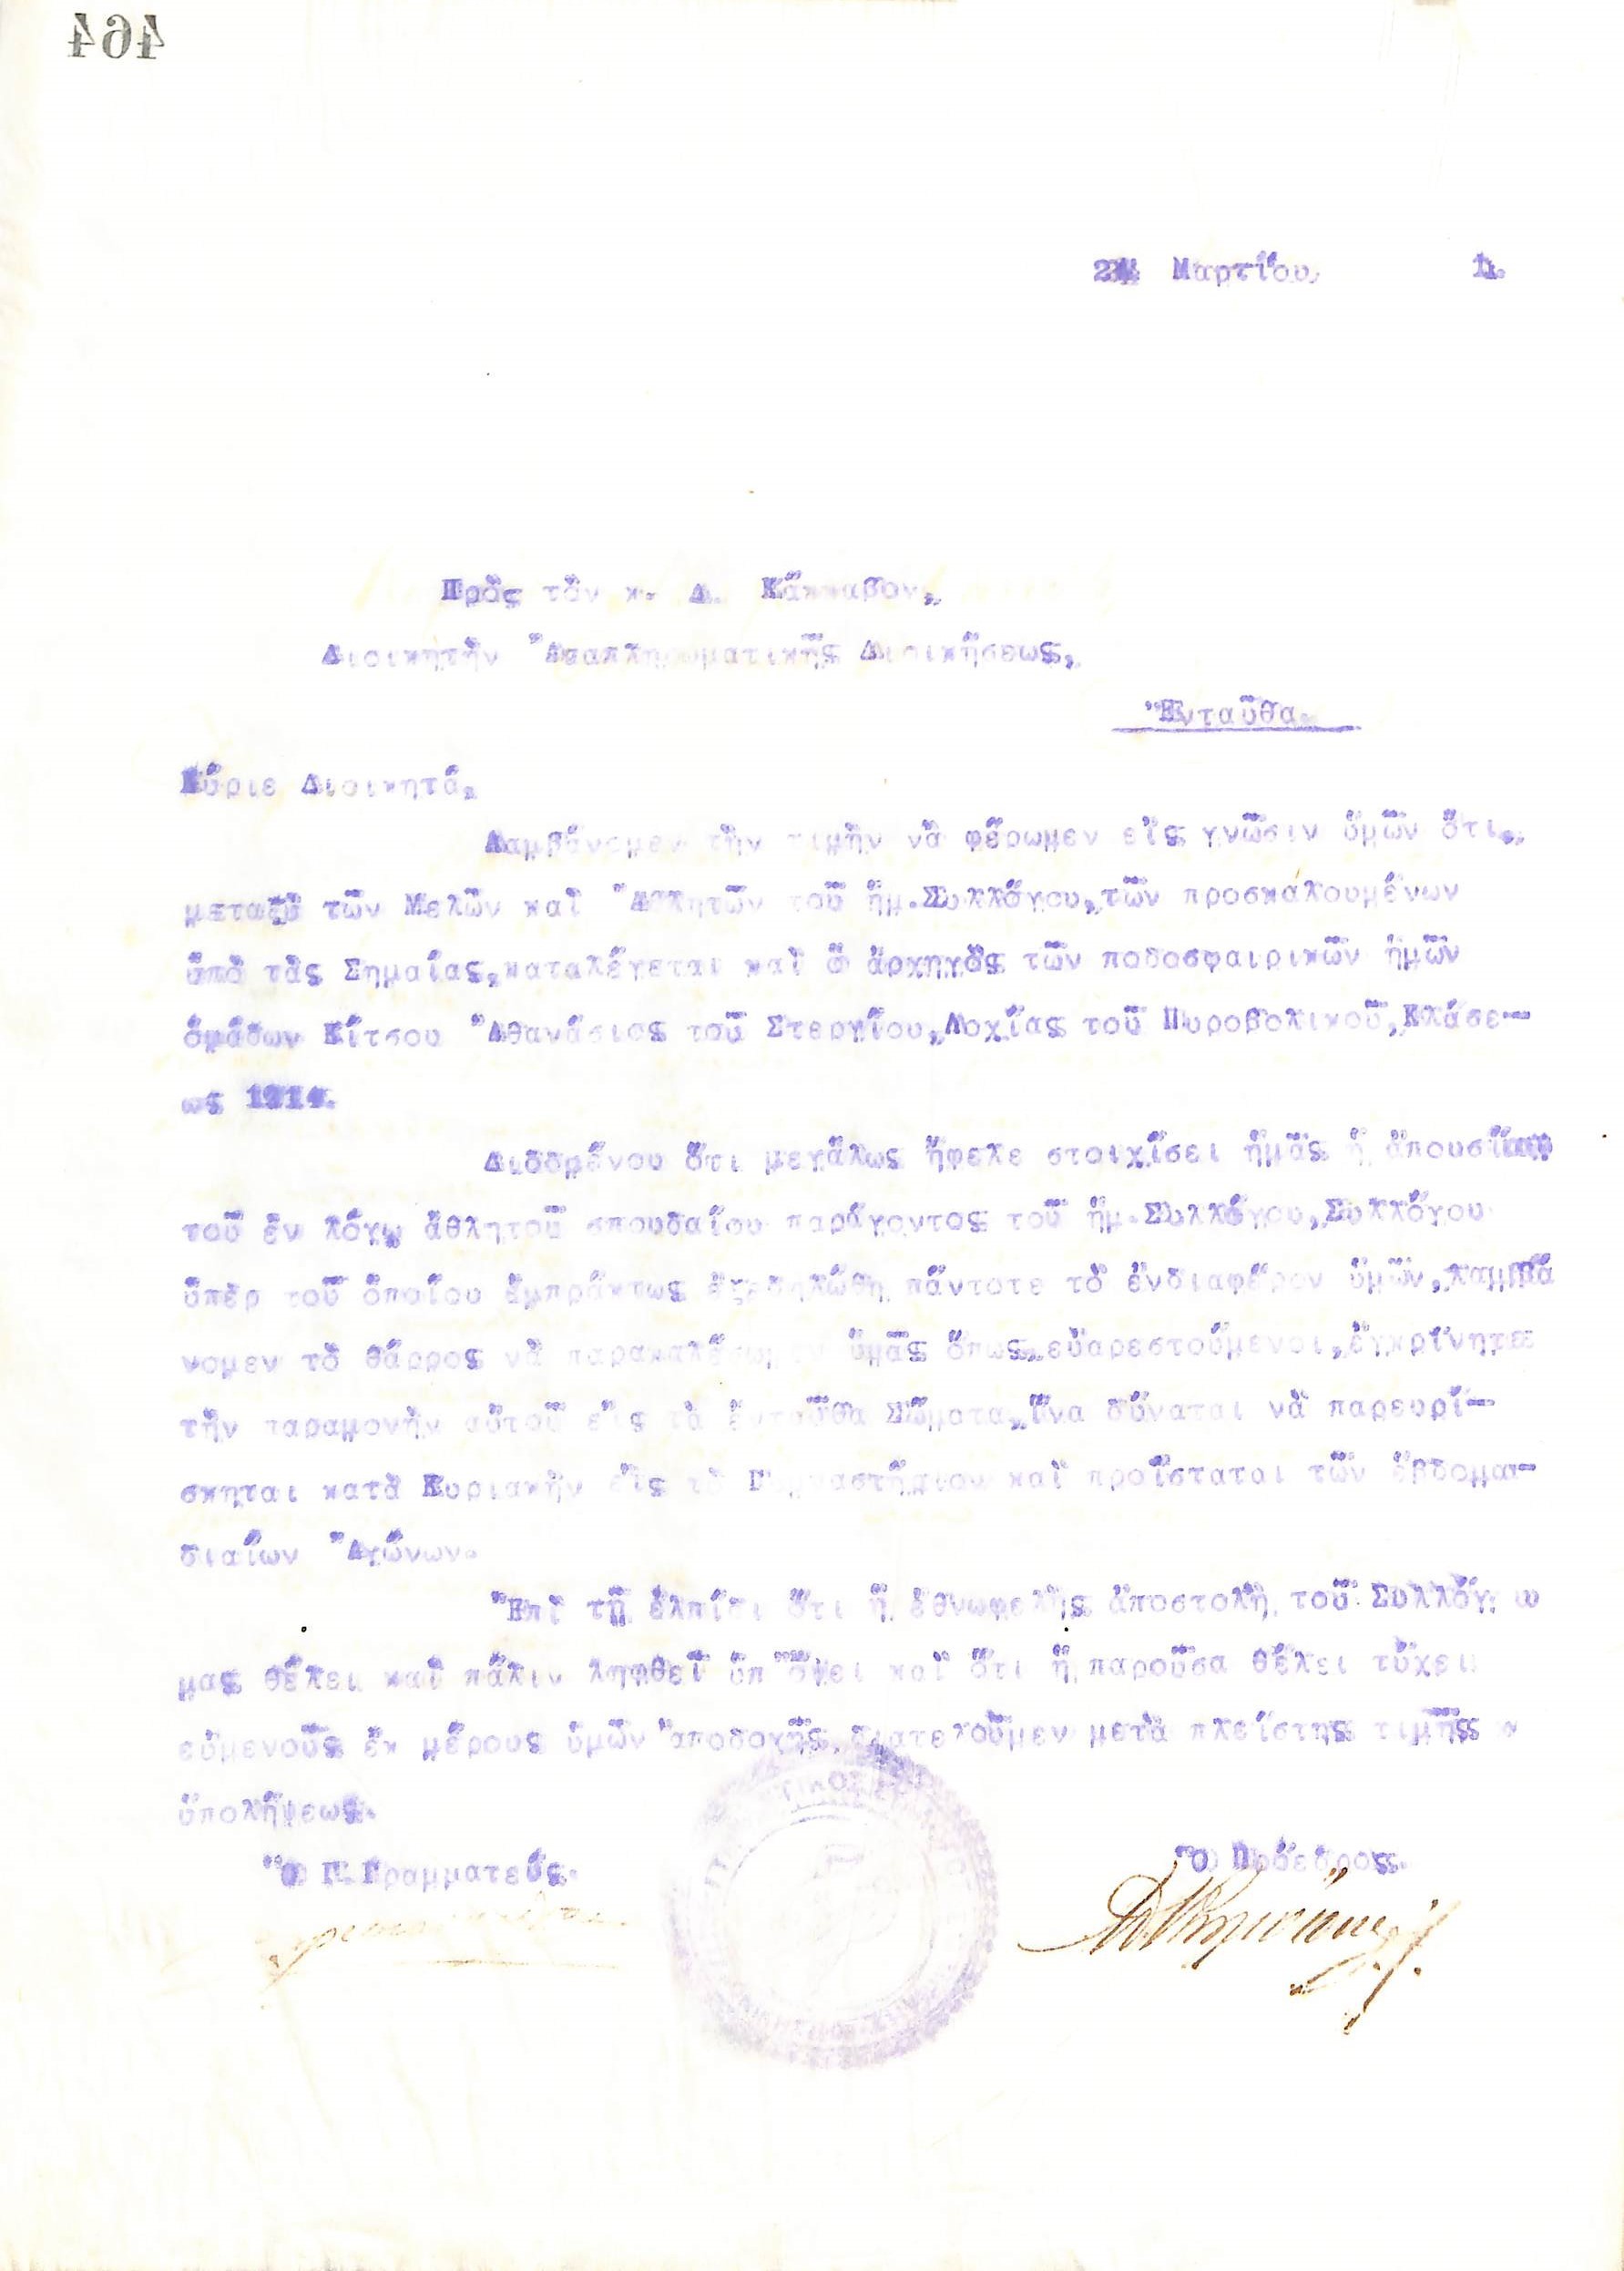 464
Μαρτίου 1.
Πρὸς τὸν κ. Δ. Κάκκαβον,
Διοικητὴν Ἀναπληρωματικῆς Διοικήσεως,
Ἐνταῦθα.
Κύριε Διοικητά,
Λαμβάνομεν τὴν τιμὴν νὰ φέρωμεν εἰς γνῶσιν ὑμῶν ὅτι,
μεταξὺ τῶν Μελῶν καὶ Ἀθλητῶν τοῦ ἡμ.Συλλόγου,τῶν προσκαλουμένων
ὑπὸ τὰς Σημαίας,καταλέγεται καὶ ὁ ἀρχηγὸς τῶν ποδοσφαιρικῶν ἡμῶν
ὁμάδων Κίτσου Ἀθανάσιος τοῦ Στεργίου,Λοχίας τοῦ Πυροβολικοῦ,Κλάσε-
ως 1914.
Διδομένου ὅτι μεγάλως ἤφελε στοιχίσει ἡμᾶς ἡ ἀπουσία
τοῦ ἐν λόγῳ ἀθλητοῦ σπουδαίου παράγοντος τοῦ ἡμ.Συλλόγου,Συλλόγου
ὑπὲρ τοῦ ὁποίου ἐμπράκτως ἐξεδηλώθη πάντοτε τὸ ἐνδιαφέρον ὑμῶν,λαμβά
νομεν τὸ θάρρος νὰ παρακαλέσωμεν ὑμᾶς ὅπως,εὐαρεστούμενοι,ἐγκρίνητε
τὴν παραμονὴν αὐτοῦ εἰς τὰ ἐνταῦθα Σώματα,ἵνα δύναται νὰ παρευρί-
σκηται κατὰ Κυριακὴν εἰς τὸ Γυμναστήριον καὶ προΐσταται τῶν ἑβδομα-
διαίων Ἀγώνων.
Ἐπὶ τῇ ἐλπίδι ὅτι ἡ ἐθνωφελὴς ἀποστολὴ τοῦ Συλλόγου
μας θέλει καὶ πάλιν ληφθεῖ ὑπ' ὄψει καὶ ὅτι ἡ παροῦσα θέλει τύχει
εὐμενοῦς ἐκ μέρους ὑμῶν ἀποδοχῆς,διατελοῦμεν μετὰ πλείστης τιμῆς κ
ὑπολήψεως.
Ὁ Γ.Γραμματεύς. Ὁ Πρόεδρος.